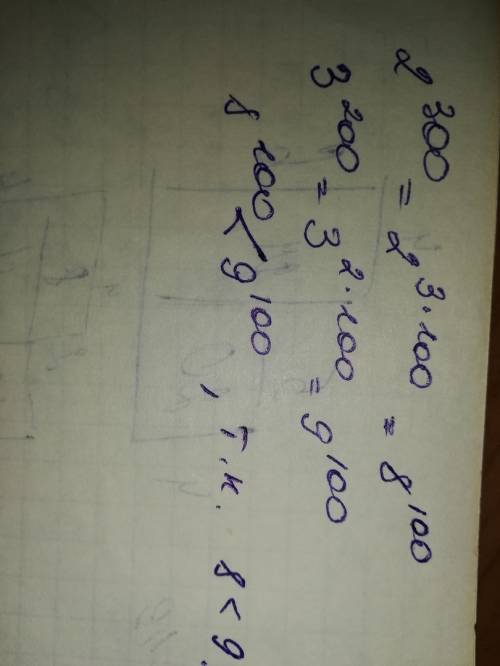 2^300 = 2^3·100 = 8^100
3^200 = 3^2·100 = 9^100
8^100 < 9^100, т.к. 8 < 9.